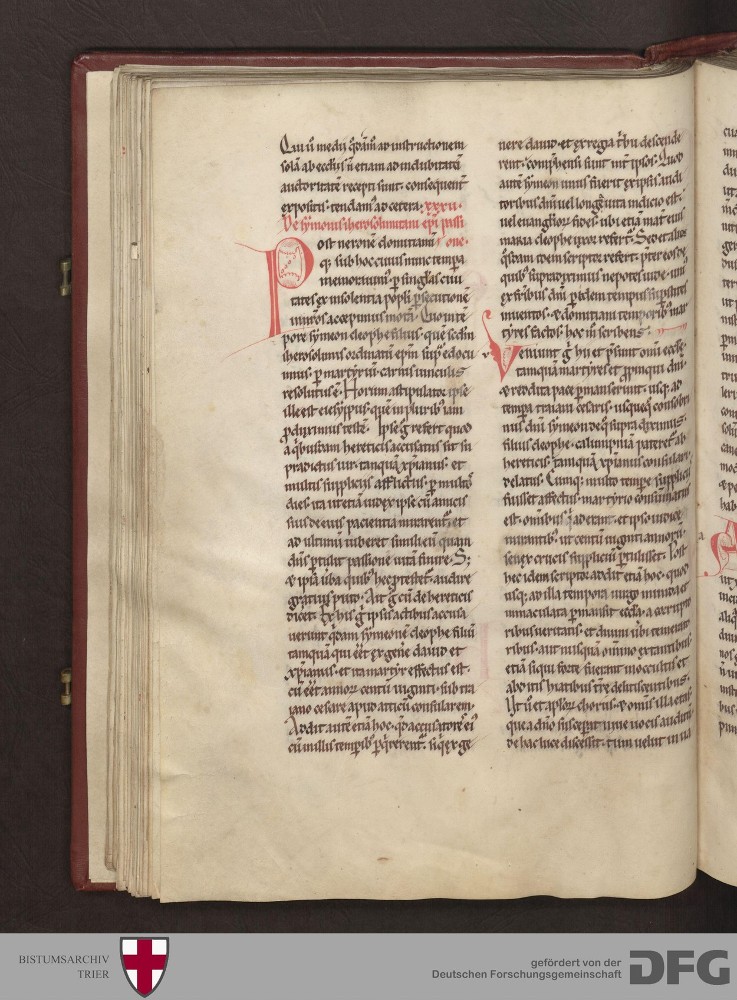 Qui ū medii q̄dām ad instructionem
solā ab eccłiis n̄ etiam ad indubitatā
auctoritatē recepti sunt. consequent̄
expositis. tendam᷒ ad cetera. xxxii.
De symonis iherosolimitani ep̄i passi
Post neronē domitianū one.
q; sub hoc cuius nunc tempa
memoram᷒. ꝑ singlas ciui
tates ex insolentia popli ꝑsecutionē
in nr̄os accepimus motā. Quo in tē
pore symeon cleophe filius. quē scd̄m
iherosolimis ordinatū ep̄m suꝑ edocu
imus. ꝑ martyriū carnis uinculis
resolutus ē. Horum astipulator ipse
ille est egesyppus. quē in plurib᷒ iam
ꝓduximus testē. Ipse g̊ refert quod
a q̇busdam hereticis accusatus sit su
pradictus uir. tanquā xp̄ianus. et
multis suppliciis afflictus. ꝑ multos
dies. ita ut etiā iudex ipse cū amicis
suis de eius pacientia mirarent̄. et
ad ultimū iuberet simili eū quam
dn̄s ꝑtulit passione uitā finire. S;
& ipsa ūba quib᷒ hec ꝓtestet᷒. audire
gratius puto. Ait g̊ cū de hereticis
dicet. Ex his g̊ ipsis actibus accusa
uerunt q̇dam symeonē cleophe filiū
tamquā qui eēt ex gen̄e dauid et
xp̄ianus. et ita martyr effectus est.
cū eēt annor. centū uiginti. sub tra
iano cesare apud atticū consularem.
Addit autē etiā hoc. qd̄ accusatorē ei᷒
cū in illis temꝑib᷒ ꝑq̇rerent̄. siq̇ ex ge
nere dauid. et ex regia tribu descende
rent. comp̄hensi sunt int̄ ipsos. Quod
autē symeon unus fuerit ex ipsis audi
toribus dn̄i uel longeuitas indicio est.
uel euanglior̄ fides. ubi etiā mat̄ eius
maria cleophe uxor refert̄. Sed et alios
q̇sdam idem scriptor refert. p̄ter eos de
quib᷒ supra diximus nepotes iude. uni᷒
ex frībus dn̄i ꝑ idem tempus suꝑstites
inuentos. & domitiani temporib᷒ mar
tyres factos. hoc m̄ scribens.
Veniunt g̊ hii et p̄sunt omi eccłę.
tamquā martyres et ꝓpinqui dn̄i.
& reddita pace ꝑmanserunt. usq; ad
tempa traiani cesaris. usquequo consobri
nus dn̄i symeon de q̊ supra diximus.
filius cleophe. calumpniā pateret᷒ ab
hereticis. tamquā xp̄ianus consulari
delatus. Cumq; multo tempe suppliciis
fuisset affectus. martyrio consūmatus
est. omībus q̇ aderant. et ipso iudice
mirantib᷒. ut centū uiginti annorū
senex crucis suppliciū ꝑtulisset. Post
hec idem scriptor addit etiā hoc. quod
usq; ad illa tempora uirgo munda et
inmaculata ꝑmansit eccła. a corrupto
ribus ueritatis. et diuini ūbi temerato
ribus. aut nusquā omīno extantibus.
etiā siqui forte fuerant in occultis et
abditis hiatibus tr̄e delitiscentibus.
Ut ū et apłor. chorus. & omīs illa etas
que a dn̄o susceperat uiue uocis auditū
de hac luce discessit. tum uelut in ua
BISTUMSARCHIV
TRIER
gefördert von der
Deutschen Forschungsgemeinschaft
DFG